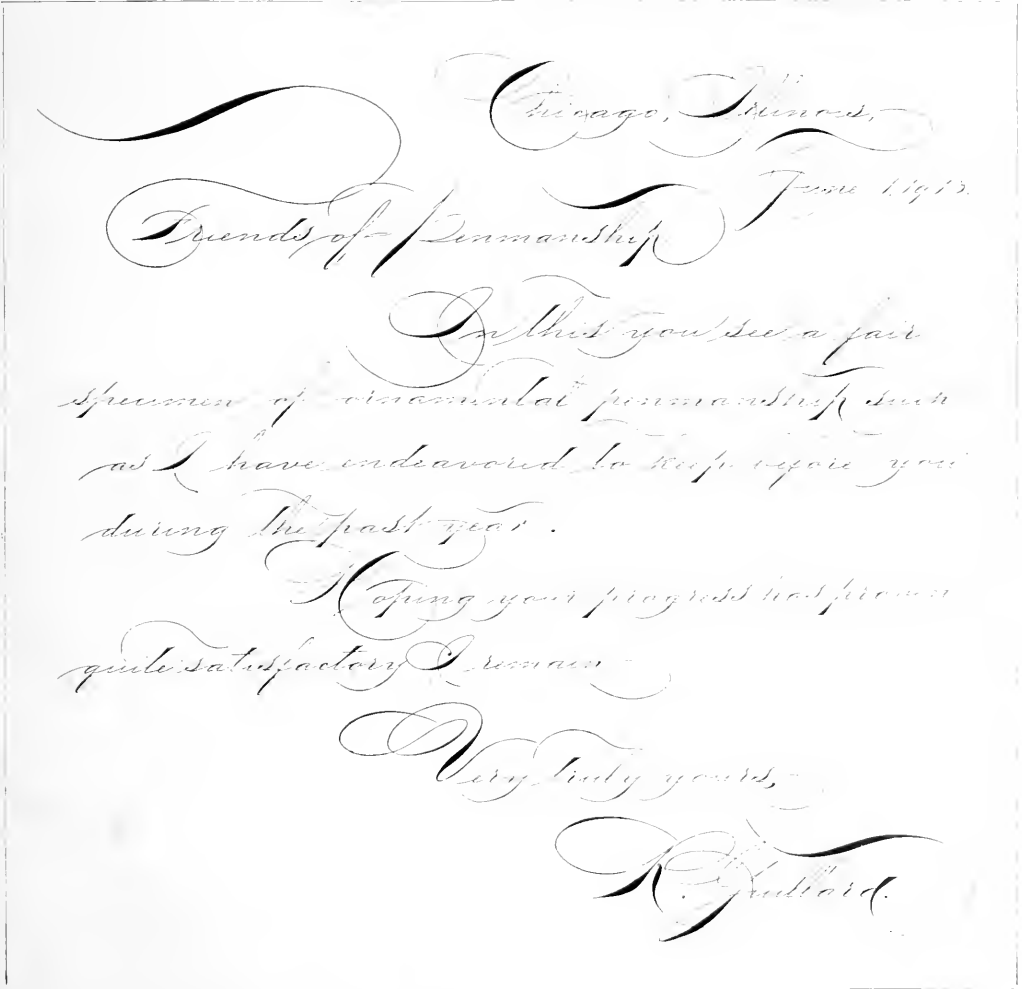 Chicago, Illinois,
June 1, 1913.
Friends of Penmanship
In this you see a fair
specimen of ornamental penmanship such
as I have endeavored to keep before you
during the past year.
Hoping your progress has proven
quite satisfactory I remain
Very truly yours,
R. Guillard.